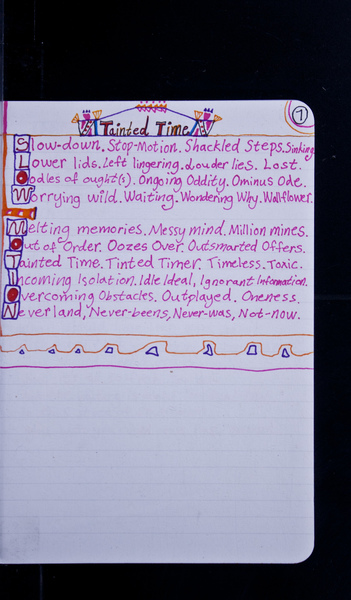 1
Tainted Time
Slow-down. Stop-Motion. Shackled Steps. Sinking
Lower lids. Left lingering. Louder lies. Lost.
Oodles of ought(s). Ongoing Oddity. Ominus Ode.
Worrying wild. Waiting. Wondering Why. Wallflower.
Melting memories. Messy mind. Million mines.
Out of Order. Oozes Over. Outsmarted Offers.
Tainted Time. Tinted Timer. Timeless. Toxic.
Incoming Isolation. Idle Ideal, Ignorant Information.
Overcoming Obstacles. Outplayed. Oneness.
Neverland, Never-beens, Never-was, Not-now.